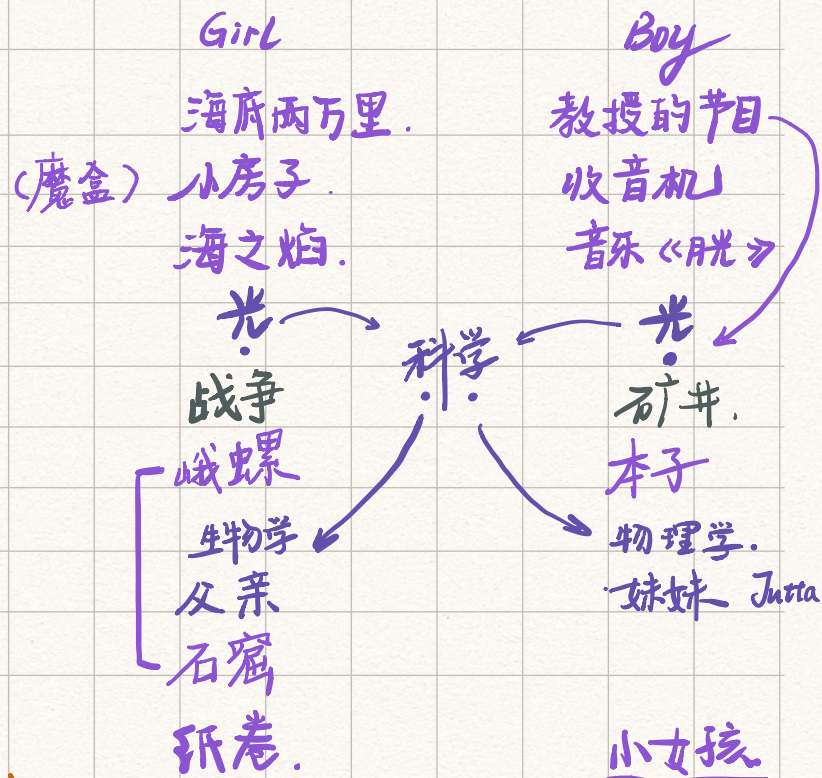 Girl
海底两万里.
(魔盒) 小房子.
海之焰.
光
战争
峨螺
生物学
父亲
石窟
纸卷.
科学
Boy
教授的节目
收音机
音乐《月光》
光
矿井.
本子
物理学.
妹妹 Jutta
小女孩.